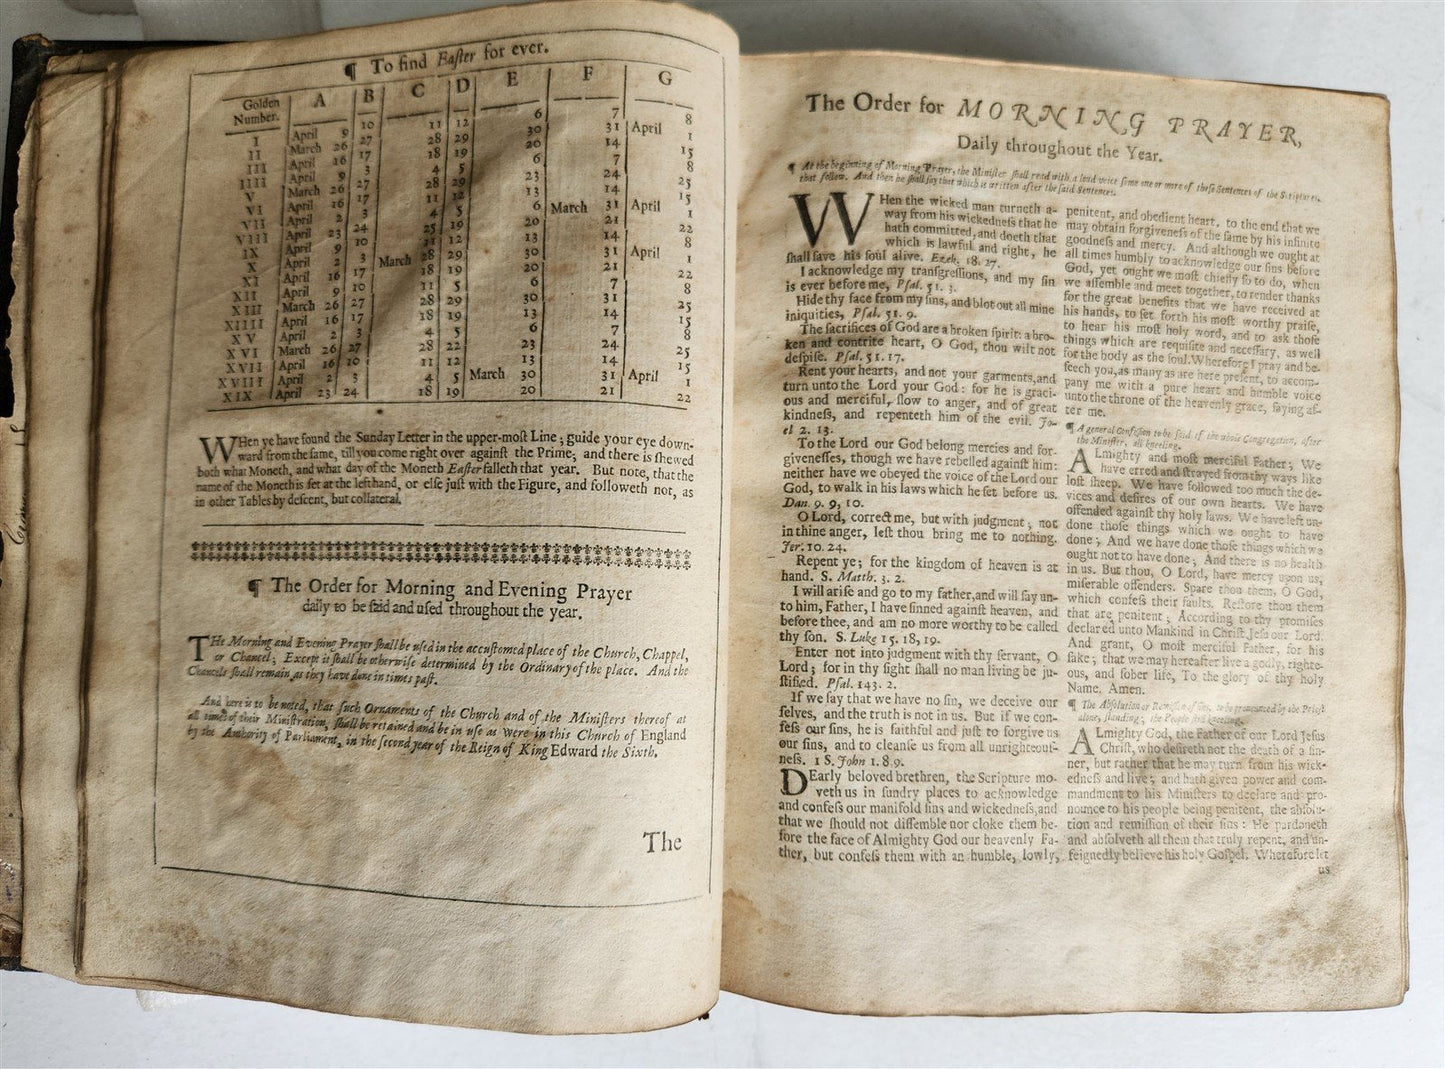 ¶ To find Eaſter for ever.
Golden Number. A B C D E F G
I April 9 10 11 12 6 7 8
II March 26 27 28 29 30 31 April 1
III April 16 17 18 19 20 14 15
IIII April 9 3 4 5 6 7 8
V March 26 27 28 29 23 24 25
VI April 16 17 11 12 13 14 15
VII April 2 3 4 5 6 March 31 April 1
VIII April 23 24 25 19 20 21 22
IX April 9 10 11 12 13 14 8
X April 2 3 March 28 29 30 31 April 1
XI April 16 17 18 19 20 21 22
XII April 9 10 11 5 6 7 8
XIII March 26 27 28 29 30 31 25
XIIII April 16 17 18 19 13 14 15
XV April 2 3 4 5 6 7 8
XVI March 26 27 28 22 23 24 25
XVII April 16 10 11 12 13 14 15
XVIII April 2 3 4 5 March 30 31 April 1
XIX April 23 24 18 19 20 21 22
WHen ye have found the Sunday Letter in the upper-moſt Line; guide your eye down-
ward from the ſame, till you come right over againſt the Prime; and there is ſhewed
both what Moneth, and what day of the Moneth Eaſter falleth that year. But note, that the
name of the Moneth is ſet at the left hand, or elſe juſt with the Figure, and followeth not, as
in other Tables by deſcent, but collateral.
¶ The Order for Morning and Evening Prayer
daily to be ſaid and uſed throughout the year.
THe Morning and Evening Prayer ſhall be uſed in the accuſtomed place of the Church, Chappel,
or Chancel; Except it ſhall be otherwiſe determined by the Ordinary of the place. And the
Chancels ſhall remain, as they have done in times paſt.
And here is to be noted, that ſuch Ornaments of the Church and of the Miniſters thereof at
all times of their Miniſtration, ſhall be retained and be in uſe as were in this Church of England
by the Authority of Parliament, in the ſecond year of the Reign of King Edward the Sixth.
The
The Order for MORNING PRAYER,
Daily throughout the Year.
¶ At the beginning of Morning Prayer, the Miniſter ſhall read with a loud voice ſome one or more of theſe Sentences of the Scriptures,
that follow. And then he ſhall ſay that which is written after the ſaid Sentences.
WHen the wicked man turneth a-
way from his wickedneſs that he
hath committed, and doeth that
which is lawful and right, he
ſhall ſave his ſoul alive. Ezek. 18. 27.
I acknowledge my tranſgreſſions, and my ſin
is ever before me, Pſal. 51. 3.
Hide thy face from my ſins, and blot out all mine
iniquities, Pſal. 51. 9.
The ſacrifices of God are a broken ſpirit: a bro-
ken and contrite heart, O God, thou wilt not
deſpiſe. Pſal. 51. 17.
Rent your hearts, and not your garments, and
turn unto the Lord your God: for he is graci-
ous and merciful, ſlow to anger, and of great
kindneſs, and repenteth him of the evil. Jo-
el 2. 13.
To the Lord our God belong mercies and for-
giveneſſes, though we have rebelled againſt him:
neither have we obeyed the voice of the Lord our
God, to walk in his laws which he ſet before us.
Dan. 9. 9, 10.
O Lord, correct me, but with judgment; not
in thine anger, leſt thou bring me to nothing.
Jer. 10. 24.
Repent ye; for the kingdom of heaven is at
hand. S. Matth. 3. 2.
I will ariſe and go to my father, and will ſay un-
to him, Father, I have ſinned againſt heaven, and
before thee, and am no more worthy to be called
thy ſon. S. Luke 15. 18, 19.
Enter not into judgment with thy ſervant, O
Lord; for in thy ſight ſhall no man living be ju-
ſtified. Pſal. 143. 2.
If we ſay that we have no ſin, we deceive our
ſelves, and the truth is not in us. But if we con-
feſs our ſins, he is faithful and juſt to forgive us
our ſins, and to cleanſe us from all unrighteouſ-
neſs. 1 S. John 1. 8. 9.
DEarly beloved brethren, the Scripture mo-
veth us in ſundry places to acknowledge
and confeſs our manifold ſins and wickedneſs, and
that we ſhould not diſſemble nor cloke them be-
fore the face of Almighty God our heavenly Fa-
ther, but confeſs them with an humble, lowly,
penitent, and obedient heart, to the end that we
may obtain forgiveneſs of the ſame by his infinite
goodneſs and mercy. And although we ought at
all times humbly to acknowledge our ſins before
God, yet ought we moſt chiefly ſo to do, when
we aſſemble and meet together, to render thanks
for the great benefits that we have received at
his hands, to ſet forth his moſt worthy praiſe,
to hear his moſt holy word, and to ask thoſe
things which are requiſite and neceſſary, as well
for the body as the ſoul. Wherefore I pray and be-
ſeech you, as many as are here preſent, to accom-
pany me with a pure heart and humble voice
unto the throne of the heavenly grace, ſaying af-
ter me.
¶ A general Confeſſion to be ſaid of the whole Congregation, after
the Miniſter, all kneeling.
ALmighty and moſt merciful Father; We
have erred and ſtrayed from thy ways like
loſt ſheep. We have followed too much the de-
vices and deſires of our own hearts. We have
offended againſt thy holy laws. We have left un-
done thoſe things which we ought to have
done; And we have done thoſe things which we
ought not to have done; And there is no health
in us. But thou, O Lord, have mercy upon us,
miſerable offenders. Spare thou them, O God,
which confeſs their faults. Reſtore thou them
that are penitent; According to thy promiſes
declared unto Mankind in Chriſt Jeſu our Lord.
And grant, O moſt merciful Father, for his
ſake; that we may hereafter live a godly, righte-
ous, and ſober life, To the glory of thy holy
Name. Amen.
¶ The Abſolution or Remiſſion of ſins, to be pronounced by the Prieſt
alone, ſtanding; the People ſtill kneeling.
ALmighty God, the Father of our Lord Jeſus
Chriſt, who deſireth not the death of a ſin-
ner, but rather that he may turn from his wick-
edneſs and live; and hath given power and com-
mandment to his Miniſters to declare and pro-
nounce to his people being penitent, the abſolu-
tion and remiſſion of their ſins: He pardoneth
and abſolveth all them that truly repent, and un-
feignedly believe his holy Goſpel. Wherefore let
us